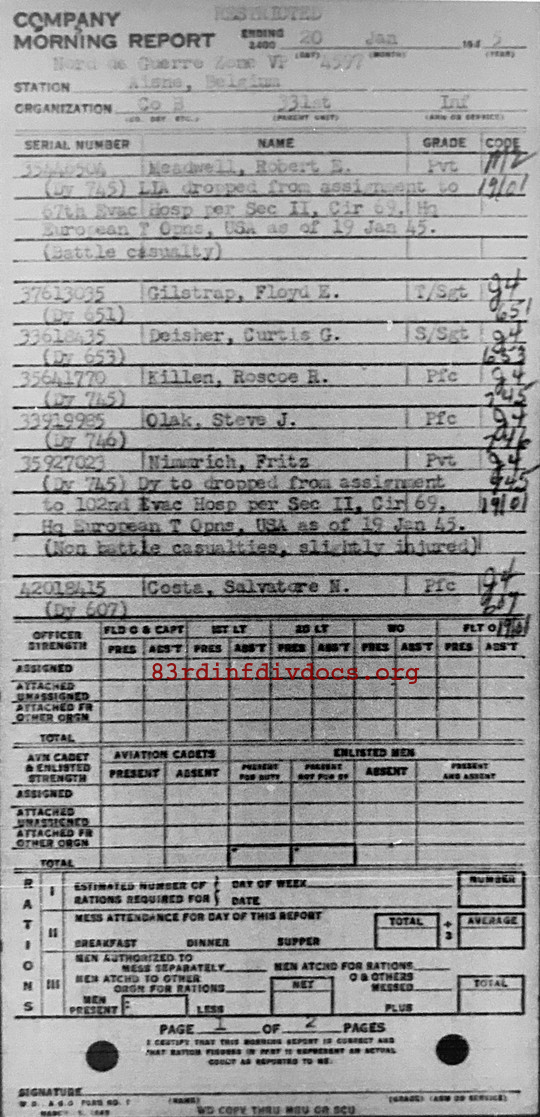 COMPANY RESTRICTED
MORNING REPORT ENDING 2400 20 Jan 194 5
(DAY) (MONTH) (YEAR)
Nord de Guerre Zone VP 4597
STATION Aisne, Belgium
ORGANIZATION Co B 331st Inf
(CO. DET. ETC.) (PARENT UNIT) (ARM OR SERVICE)
SERIAL NUMBER NAME GRADE CODE
35440504 Meadwell, Robert E. Pvt
(Dy 745) LIA dropped from assignment to 19/01
67th Evac Hosp per Sec II, Cir 69, Hq
European T Opns, USA as of 19 Jan 45.
(Battle casualty)
37613035 Gilstrap, Floyd E. T/Sgt g4
(Dy 651) 651
33618435 Deisher, Curtis G. S/Sgt g4
(Dy 653) 653
35641770 Killen, Roscoe R. Pfc g4
(Dy 745) 745
33919985 Olak, Steve J. Pfc g4
(Dy 746) 746
35927023 Nimmrich, Fritz Pvt g4
(Dy 745) Dy to dropped from assignment 745
to 102nd Evac Hosp per Sec II, Cir 69, 19/01
Hq European T Opns, USA as of 19 Jan 45.
(Non battle casualties, slightly injured)
42018415 Costa, Salvatore N. Pfc g4
(Dy 607) 607
OFFICER STRENGTH FLD O & CAPT 1ST LT 2D LT WO FLT O 19/01
PRES ABS'T PRES ABS'T PRES ABS'T PRES ABS'T PRES ABS'T
83rdinfdivdocs.org
ASSIGNED
ATTACHED UNASSIGNED
ATTACHED FR OTHER ORGN
TOTAL
AVN CADET & ENLISTED STRENGTH AVIATION CADETS ENLISTED MEN
PRESENT ABSENT PRESENT FOR DUTY PRESENT NOT FOR DY ABSENT PRESENT AND ABSENT
ASSIGNED
ATTACHED UNASSIGNED
ATTACHED FR OTHER ORGN
TOTAL
RATIONS
I ESTIMATED NUMBER OF RATIONS REQUIRED FOR { DAY OF WEEK NUMBER
DATE
II MESS ATTENDANCE FOR DAY OF THIS REPORT TOTAL ÷ 3 AVERAGE
BREAKFAST DINNER SUPPER
III MEN AUTHORIZED TO MESS SEPARATELY MEN ATCHD FOR RATIONS
MEN ATCHD TO OTHER ORGN FOR RATIONS NET O & OTHERS MESSED TOTAL
MEN PRESENT LESS PLUS
PAGE 1 OF 2 PAGES
I CERTIFY THAT THIS MORNING REPORT IS CORRECT AND
THAT RATION FIGURES IN PART II REPRESENT AN ACTUAL
COUNT AS REPORTED TO ME.
SIGNATURE
(NAME) (GRADE) (ARM OR SERVICE)
W. D., A. G. O. FORM NO. 1
WD COPY THRU MRU OR SCU